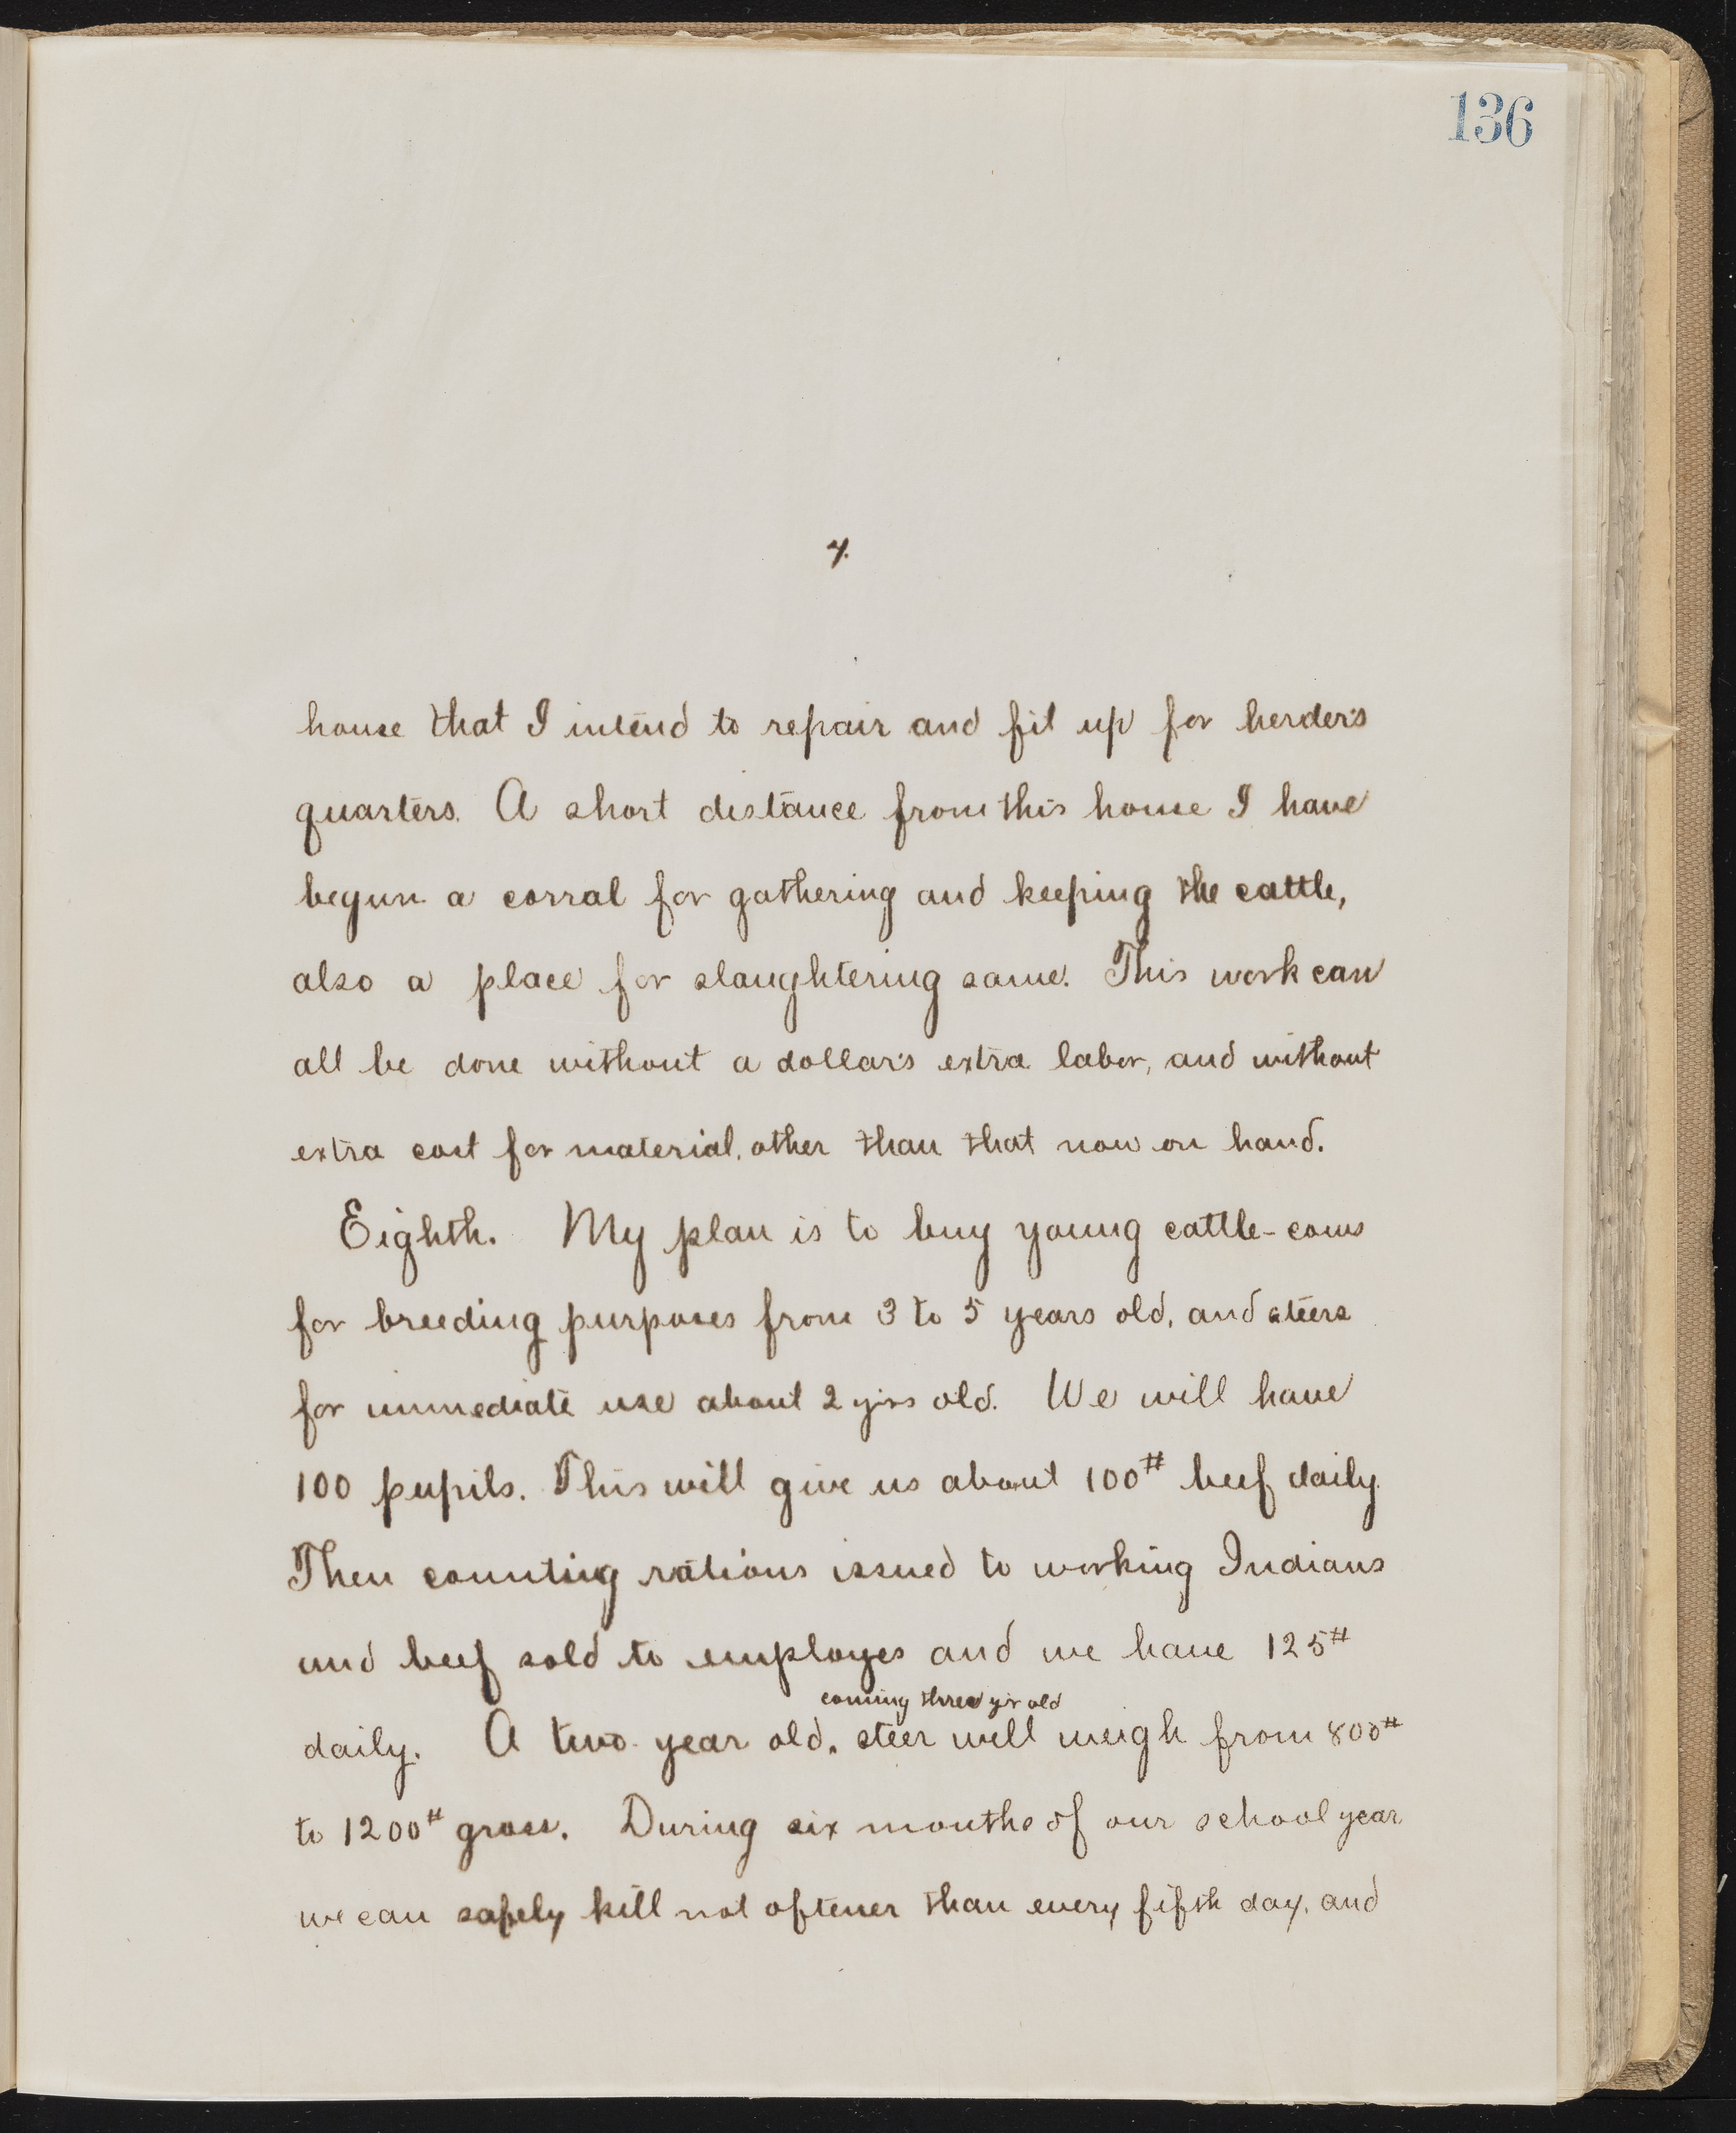 136
4.
house that I intend to repair and fit up for herder's
quarters. A short distance from this house I have
begun a corral for gathering and keeping the cattle,
also a place for slaughtering same. This work can
all be done without a dollar's extra labor, and without
extra cost for material, other than that now on hand.
Eighth. My plan is to buy young cattle - cows
for breeding purposes from 3 to 5 years old, and steers
for immediate use about 2 yrs old. We will have
100 pupils. This will give us about 100# beef daily.
Then counting rations issued to working Indians
and beef sold to employes and we have 125#
coming three yr old
daily. A two year old. steer will weigh from 800#
to 1200# gross. During six months of our school year
we can safely kill not oftener than every fifth day, and